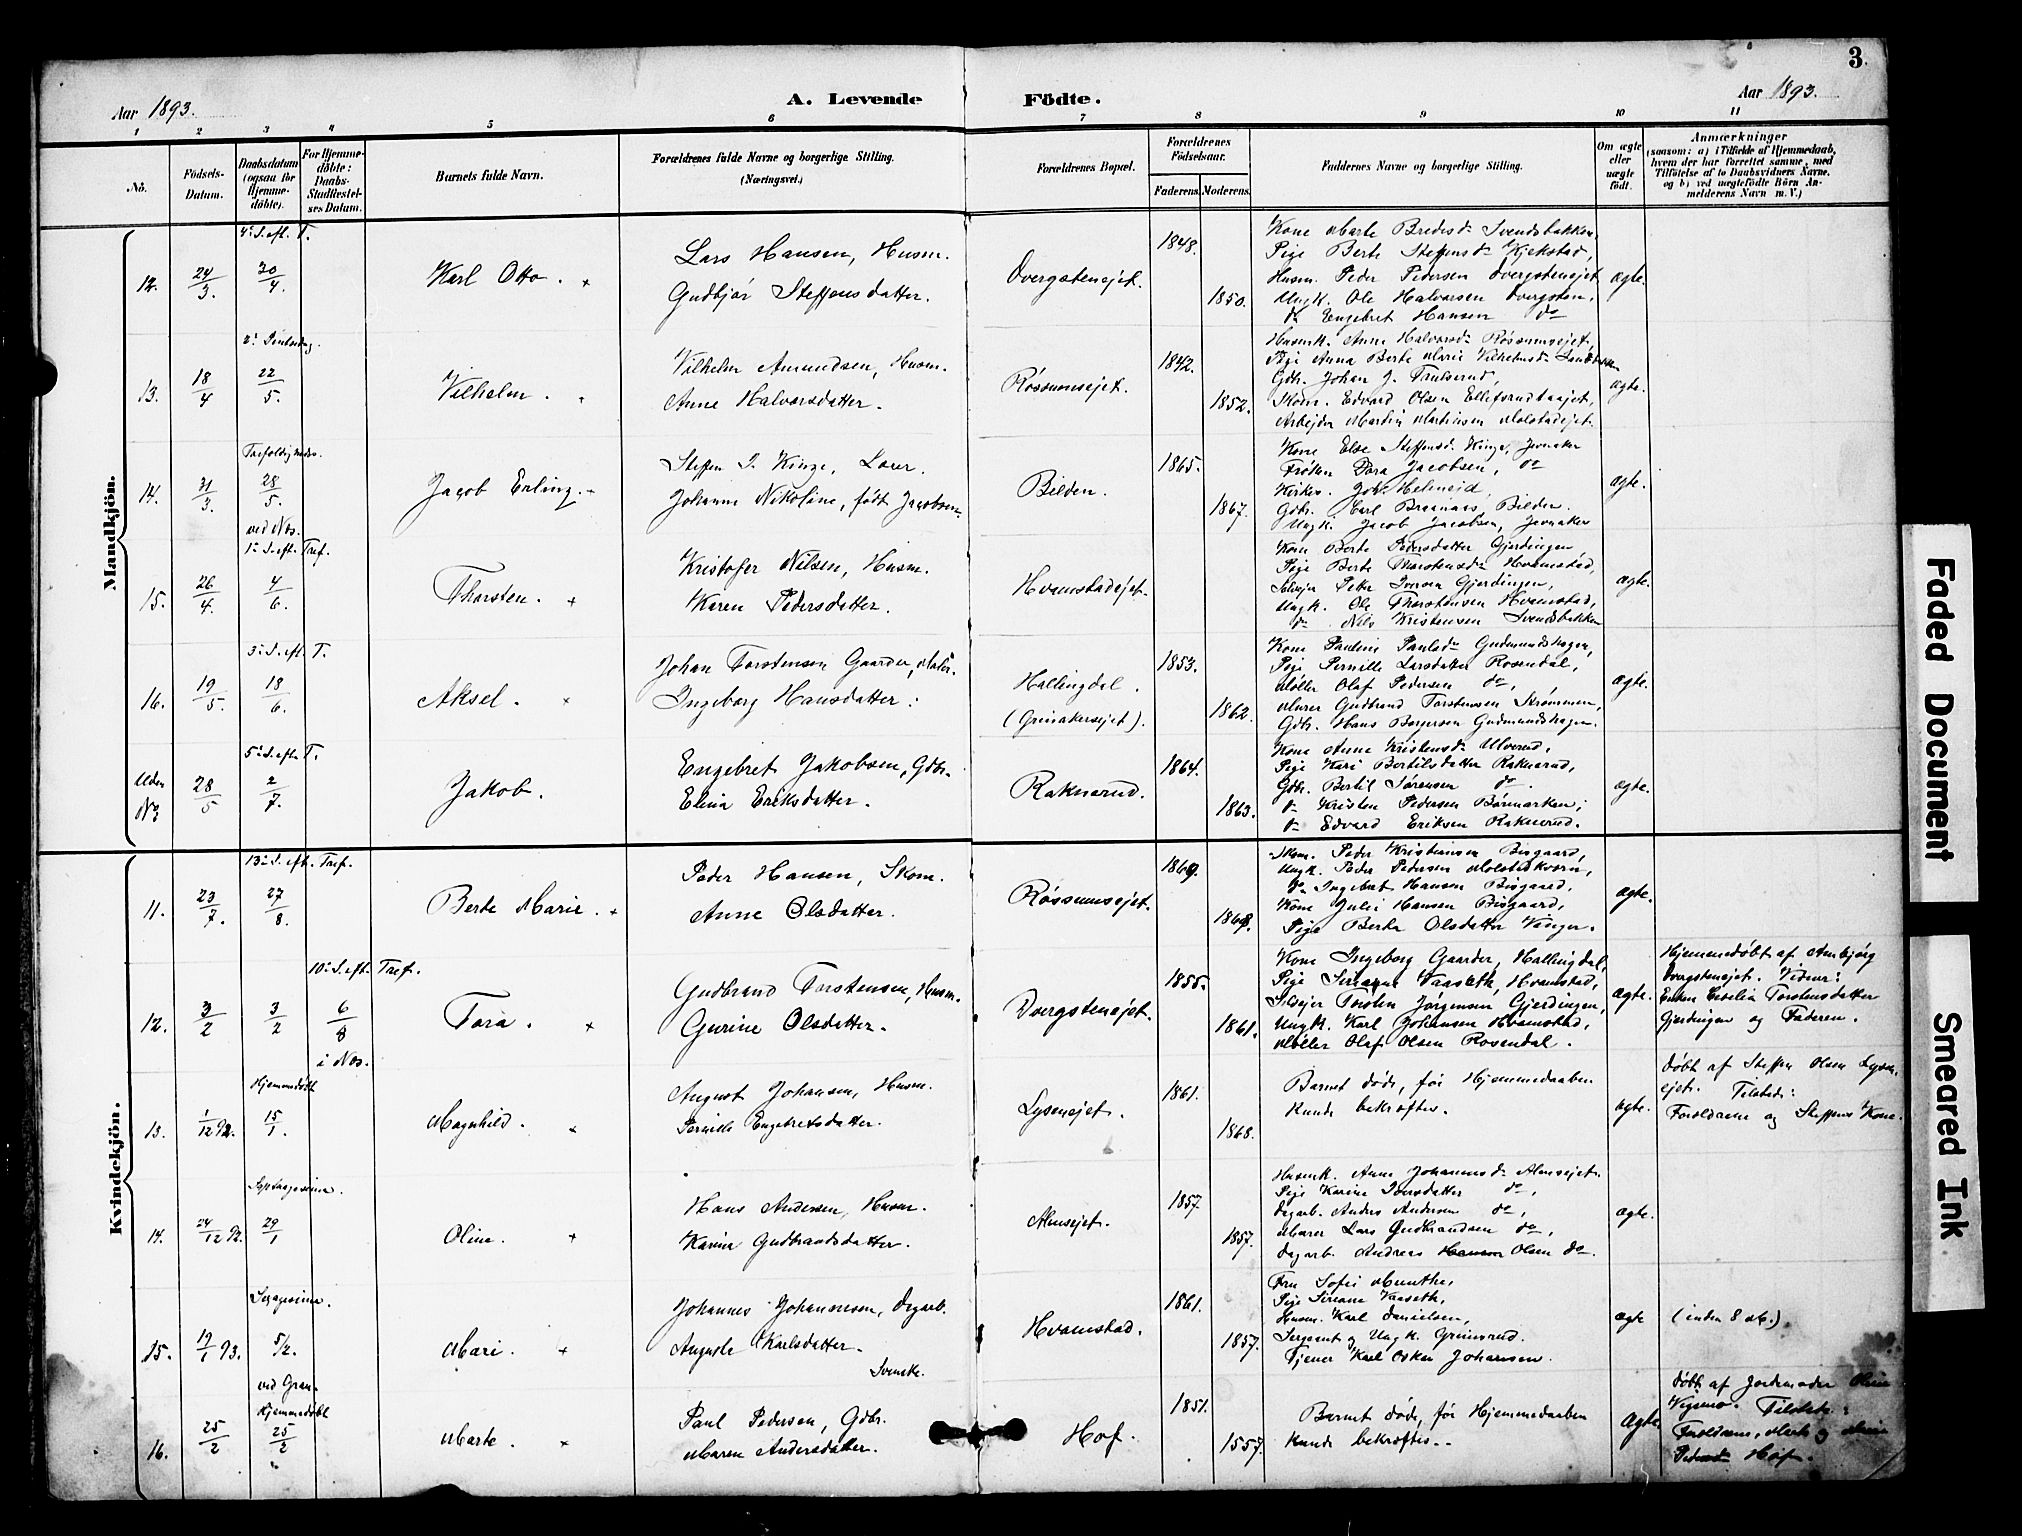 3.
Aar 1893. A. Levende Födte. Aar 1893.
1 2 3 4 5 6 7 8 9 10 11
No.
Födsels-Datum.
Daabsdatum (ogsaa for Hjemmedöbte).
For Hjemmedöbte: Daabs-Stadfæstelses Datum.
Barnets fulde Navn.
Forældrenes fulde Navne og borgerlige Stilling.
(Næringsvei.)
Forældrenes Bopæl.
Forældrenes Födselsaar.
Faderens. Moderens.
Faddernes Navne og borgerlige Stilling.
Om ægte eller uægte födt.
Anmærkninger
(saasom: a) i Tilfælde af Hjemmedaab, hvem der har forrettet samme, med Tilföielse af to Daabsvidners Navne, og b) ved uægtefödte Börn Anmelderens Navn m. V.)
Mandkjön.
4. S. eft. T.
12. 24/3. 30/4. Karl Otto.
Lars Hansen, Husm.
Gudbjør Steffensdatter.
Dvergstenejet. 1848. 1850.
Kone Marte Bredesd. Svendsbakken,
Pige Berte Steffensd. Kjekstad,
Husm. Peder Pedersen Dvergstenejet
Ungk. Ole Halvorsen Dvergsten,
do Engebret Hansen do
ægte.
2. Pintsedag.
13. 18/4 22/5. Vilhelm.
Vilhelm Amundsen, Husm.
Anne Halvorsdatter.
Røssumsejet. 1842. 1852.
Husmk. Anne Halvorsd. Røssumsejet,
Pige Anna Berte Marie Vilhelmsd.
Gdbr. Johan J. Trulserud,
Skom. Edvard Olsen
Arbejder Martin Martinsen Molstadejet.
ægte.
Trefoldighedss.
14. 31/3. 28/5. Jacob Erling.
Steffen J. Kinge, Lærer.
Johanne Nikoline, født Jacobsen.
Bilden. 1865. 1867.
Kone Else Steffensd. Kinge, Jevnaker
Frøken Dora Jacobsen, do
Kirkes. Joh. Helmeid,
Gdbr. Carl Braanaas, Bilden.
Ungk. Jacob Jacobsen, Jevnaker
ægte.
ved Nes.
1. S. eft. Tref.
15. 26/4. 4/6. Thorsten.
Kristofer Nilsen, Husm.
Karen Pedersdatter.
Hvamstadejet.
Kone Berte Pedersdatter Gjerdingen,
Pige Berte Thorstensd. Hvamstad,
Selvejer Peter Iversen Gjerdingen,
Ungk. Ole Thorstensen Hvamstad,
do Nils Kristensen Svendsbakken
ægte.
3. S. eft. T.
16. 19/5. 18/6. Aksel.
Johan Torstensen Gaarder, Maler.
Ingeborg Hansdatter.
Hallingdal.
(Grinakersejet). 1853. 1862.
Kone Pauline Paulsd. Gudmundshagen,
Pige Pernille Larsdatter Rosendal,
Møller Olaf Pedersen do,
Murer Gudbrand Torstensen Strømmen,
Gdbr. Hans Borgersen Gudmundshagen.
ægte.
5. S. eft. T.
Uden No 28/5 2/7. Jakob.
Engebret Jakobsen, Gdbr.
Elina Eriksdatter.
Raknerud. 1864. 1863.
Kone Anne Kristensd. Ulverud,
Pige Kari Bertilsdatter Raknerud,
Gdbr. Bertil Sørensen do.
do Kristen Pedersen Bönmarken,
do Edvard Eriksen Raknerud.
ægte.
Kvindekjön.
13. S. eft. Tref.
11. 23/7. 27/8. Berte Marie.
Peder Hansen, Skom.
Anne Olsdatter.
Røssumsejet. 1869. 1868.
Skom. Peder Kristiansen Bisgaard,
Ungk. Peder Pedersen Molstadkvern,
do Ingebret Hansen Bisgaard,
Kone Julie Hansen Bisgaard,
Pige Berthe Olsdatter Vinger.
ægte.
10. S. eft. Tref.
12. 3/2 3/2 6/8 Tora.
i Nes.
Gudbrand Torstensen, Husm.
Gurine Olsdatter.
Dvergstenejet. 1855. 1861.
Kone Ingeborg Gaarder, Hallingdal,
Pige Siriane Vaaseth, Hvamstad,
Selvejer Torsten Jørgensen Gjerdingen,
Ungk. Karl Johansen Hvamstad,
Møller Olaf Olsen Rosendal.
ægte.
Hjemmedøbt af Anbjørg
Dvergstenejet. Vidner:
Enken Cecelia Torstensdatter
Gjerdingen og Faderen.
Hjemmedøbt
13. 1/12 92. 15/1. Magnhild.
August Johansen, Husm.
Pernille Engebretsdatter.
Lysenejet. 1861. 1868.
Barnet døde, før Hjemmedaaben
kunde bekræftes.
ægte.
Døbt af Steffen Olsen Lysen-
ejet. Tilstede:
Forældrene og Steffens Kone.
Septuagesima.
14. 24/12 92. 29/1 Oline.
Hans Andersen, Husm.
Karine Gudbrandsdatter.
Almsejet. 1857. 1857.
Husmk. Anne Johannesd. Almsejet.
Pige Karine Iversdatter do,
Dagarb. Anders Andersen do,
Murer Lars Gudbrandsen do,
Dagarb. Andreas Hansen Olsen do.
ægte.
Sexagesima.
15. 19/1 93. 5/2. Mari.
Johannes Johannesen, Dagarb.
Auguste Karlsdatter.
Svenske.
Hvamstad. 1861. 1857.
Fru Sofie Munthe,
Pige Siriane Vaaseth,
Husm. Karl Danielsen,
Sergeant og Ungk. Grimsrud.
Tjener Karl Oskar Johansen.
ægte
(inden 8 M.).
ved Gran.
Hjemmedøbt
16. 25/2 25/2 Marte.
Paul Pedersen, Gdbr.
Maren Andersdatter.
Hof. 1851. 1557.
Barnet døde, før Hjemmedaaben
kunde bekræftes.
Ægte.
Døbt af Jordemoder Oline
Tilstede:
Forældrene, Marte og
Hof.
Faded Document
Smeared Ink